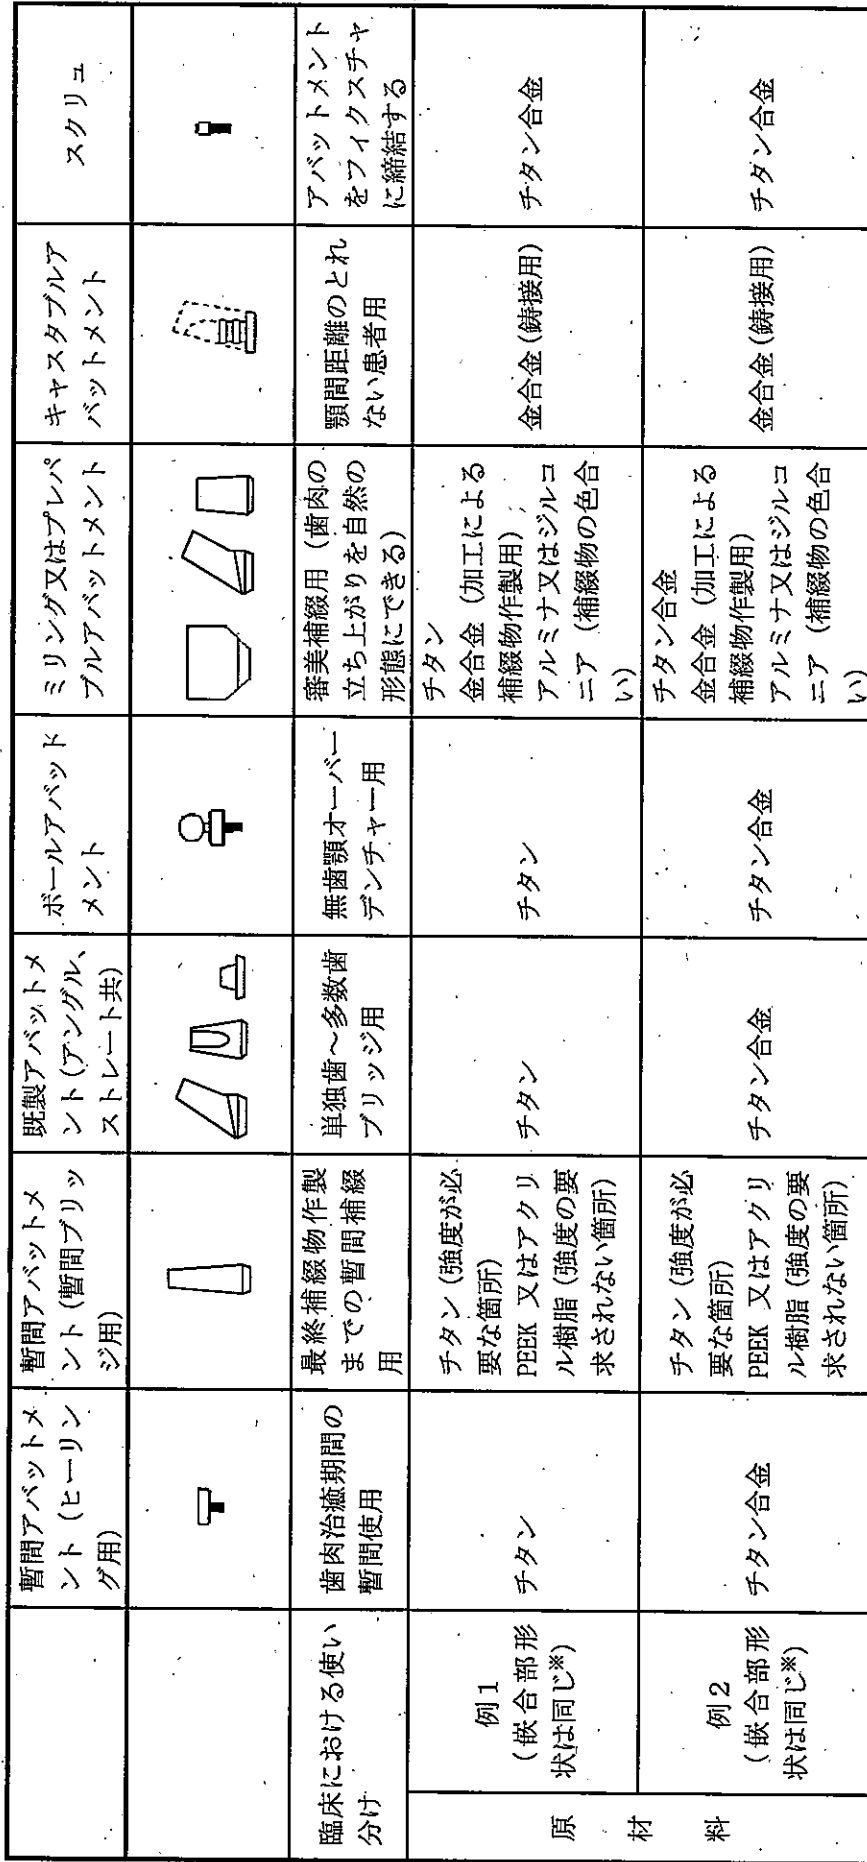 暫間アバットメ
ント(ヒーリン
グ用)
暫間アバットメ
ント(暫間ブリッ
ジ用)
既製アバットメ
ント(アングル、
ストレート共)
ボールアバッド
メント
ミリング又はプレパ
ブルアバットメント
キャスタブルア
バットメント
スクリュ
臨床における使い
分け
歯肉治癒期間の
暫間使用
最終補綴物作製
までの暫間補綴
用
単独歯~多数歯
ブリッジ用
無歯顎オーバー
デンチャー用
審美補綴用(歯肉の
立ち上がりを自然の
形態にできる)
顎間距離のとれ
ない患者用
アバットメント
をフィクスチャ
に締結する
原
材
料
例1
(嵌合部形
状は同じ※)
チタン
チタン(強度が必
要な箇所)
PEEK 又はアクリ
ル樹脂(強度の要
求されない箇所)
チタン
チタン
チタン
金合金(加工による
補綴物作製用)
アルミナ又はジルコ
ニア(補綴物の色合
い)
金合金(鋳接用)
チタン合金
例2
(嵌合部形
状は同じ※)
チタン合金
チタン(強度が必
要な箇所)
PEEK 又はアクリ
ル樹脂(強度の要
求されない箇所)
チタン合金
チタン合金
チタン合金
金合金(加工による
補綴物作製用)
アルミナ又はジルコ
ニア(補綴物の色合
い)
金合金(鋳接用)
チタン合金